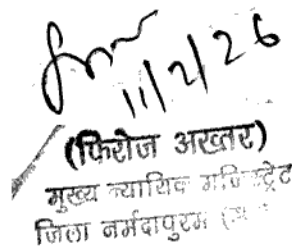 11/2/26
(फिरोज अख्तर)
मुख्य न्यायिक मजिस्ट्रेट
जिला नर्मदापुरम